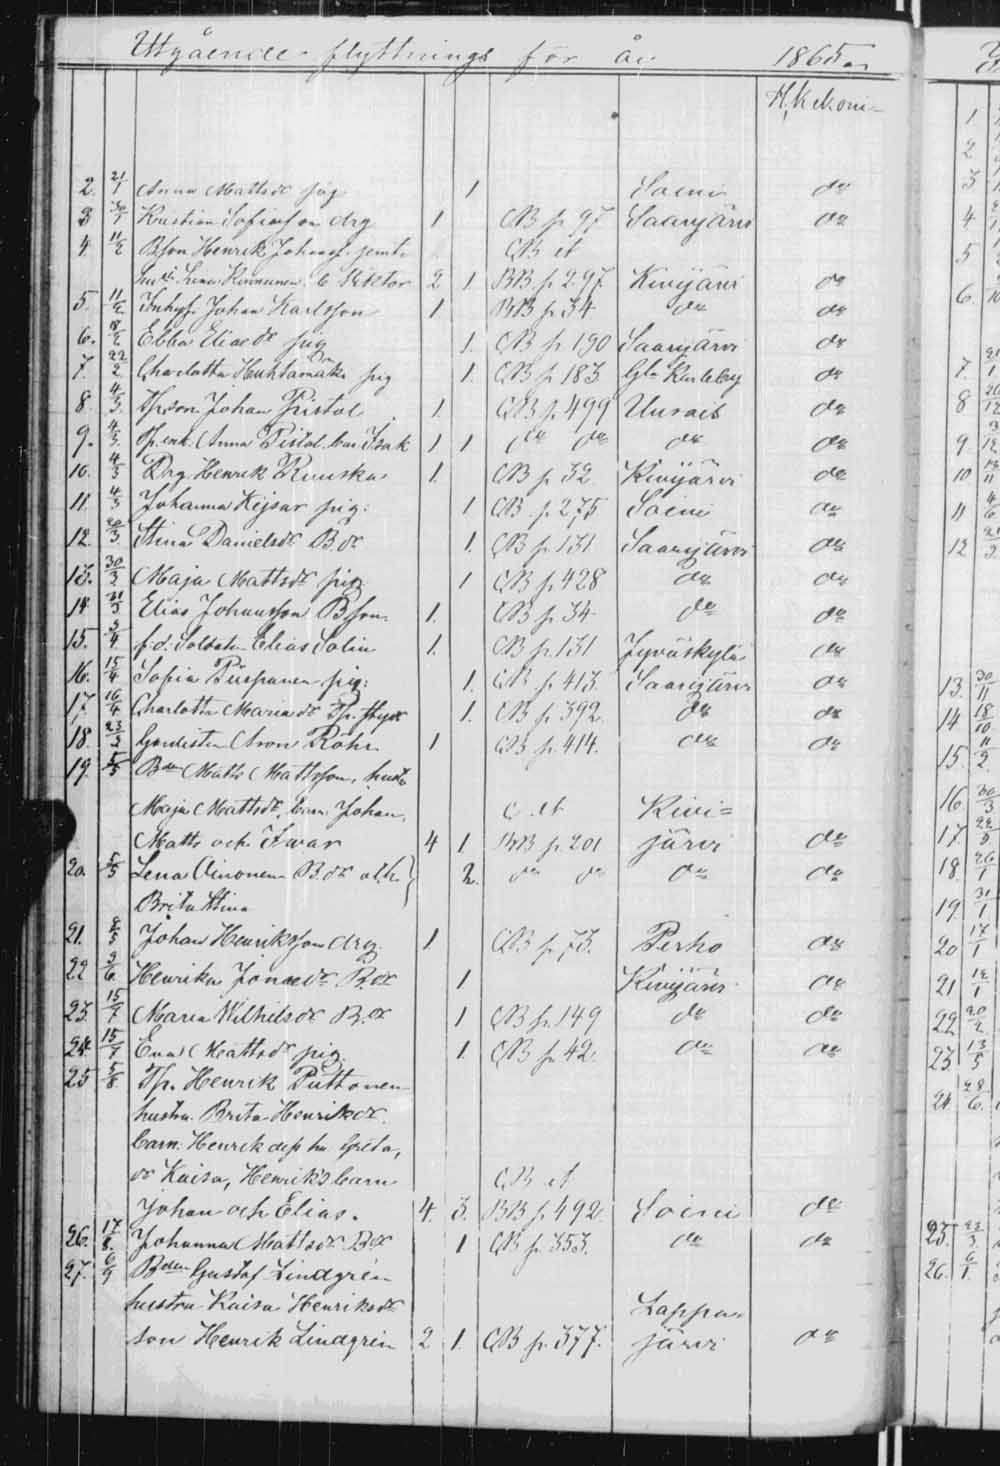 Utgående flyttnings för år 1865
2. 21/1 Anna Mattsdr pig 1 Soini do
3 30/1 Kristian Sofiason drg 1 CB p 97 Saarijärvi do
4. 11/2 Bson Henrik Johanss. jemte CB et
Lena Kinnunen. b Viktor 2 1 BB. p 297. Kivijärvi do
5. 11/2 Inhys. Johan Karlsson 1 BB p 34 do do
6. 18/2 Ebba Eliaedr pig 1. CB p 190 Saarijärvi do
7. 22/2 Charlotta Huhtamäki pig 1. CB p 183 Gla Karleby do
8. 4/3. Tp.son Johan Pistol 1. CB p. 499 Uurais do
9. 4/3. Tp. enk. Anna Pistol. bar. Isak 1 1 do do do do
10. 4/3 Drg. Henrik Ruuska 1. CB p 32 Kivijärvi do
11. 4/3 Johanna Kejsar pig. 1 CB p. 275 Soini do
12. 20/3. Stina Danielsdr B. dr 1. CB p. 131 Saarijärvi do
13. 30/3. Maja Mattsdr pig 1 CB p. 428 do do
14. 31/3 Elias Johansson Bson. 1. CB p. 34. do do
15. 3/4. f.d. Soldaten Elias Solin 1. CB p. 131 Jyväskylä do
16. 15/4 Sofia Piispanen pig: 1. CB p. 413. Saarijärvi do
17. 16/4 Charlotta Mariaedr Tp. stydr 1. CB p. 392. do do
18. 23/3 Gardisten Aron Röhr 1 CB p. 414. do do
19. 5/5 Bden Matts Mattsson, hustr
Maja Mattsdr, barn Johan, C. et Kivi=
Matts och Iwar 4 1 BB p. 201 järvi do
20. 5/5 Lena Oinonen B. dr och 2. do do do do
Brita Stina
21. 8/5 Johan Henriksson drg. 1. CB p. 73. Perho do
22 2/6. Henrika Jonaedr B. dr 1 Kivijärvi do
23. 15/7 Maria Wilhelsdr B. dr 1 CB p. 149 do do
24. 15/7 Eva Mattsdr pig. 1. CB p. 42. do do
25 5/8. Tp. Henrik Puttonen
hustru Brita Henriksdr.
barn: Henrik dess hu Greta,
dr Kaisa, Henriks barn CB et
Johan och Elias. 4. 3. BB p. 492. Soini do
26. 17/8. Johanna Mattsdr Bdr 1 CB p. 353. do do
27. 6/9 Bden Gustaf Lindgrén
hustru Kaisa Henriksdr Lappa=
son Henrik Lindgrén 2 1. CB p. 377. järvi do